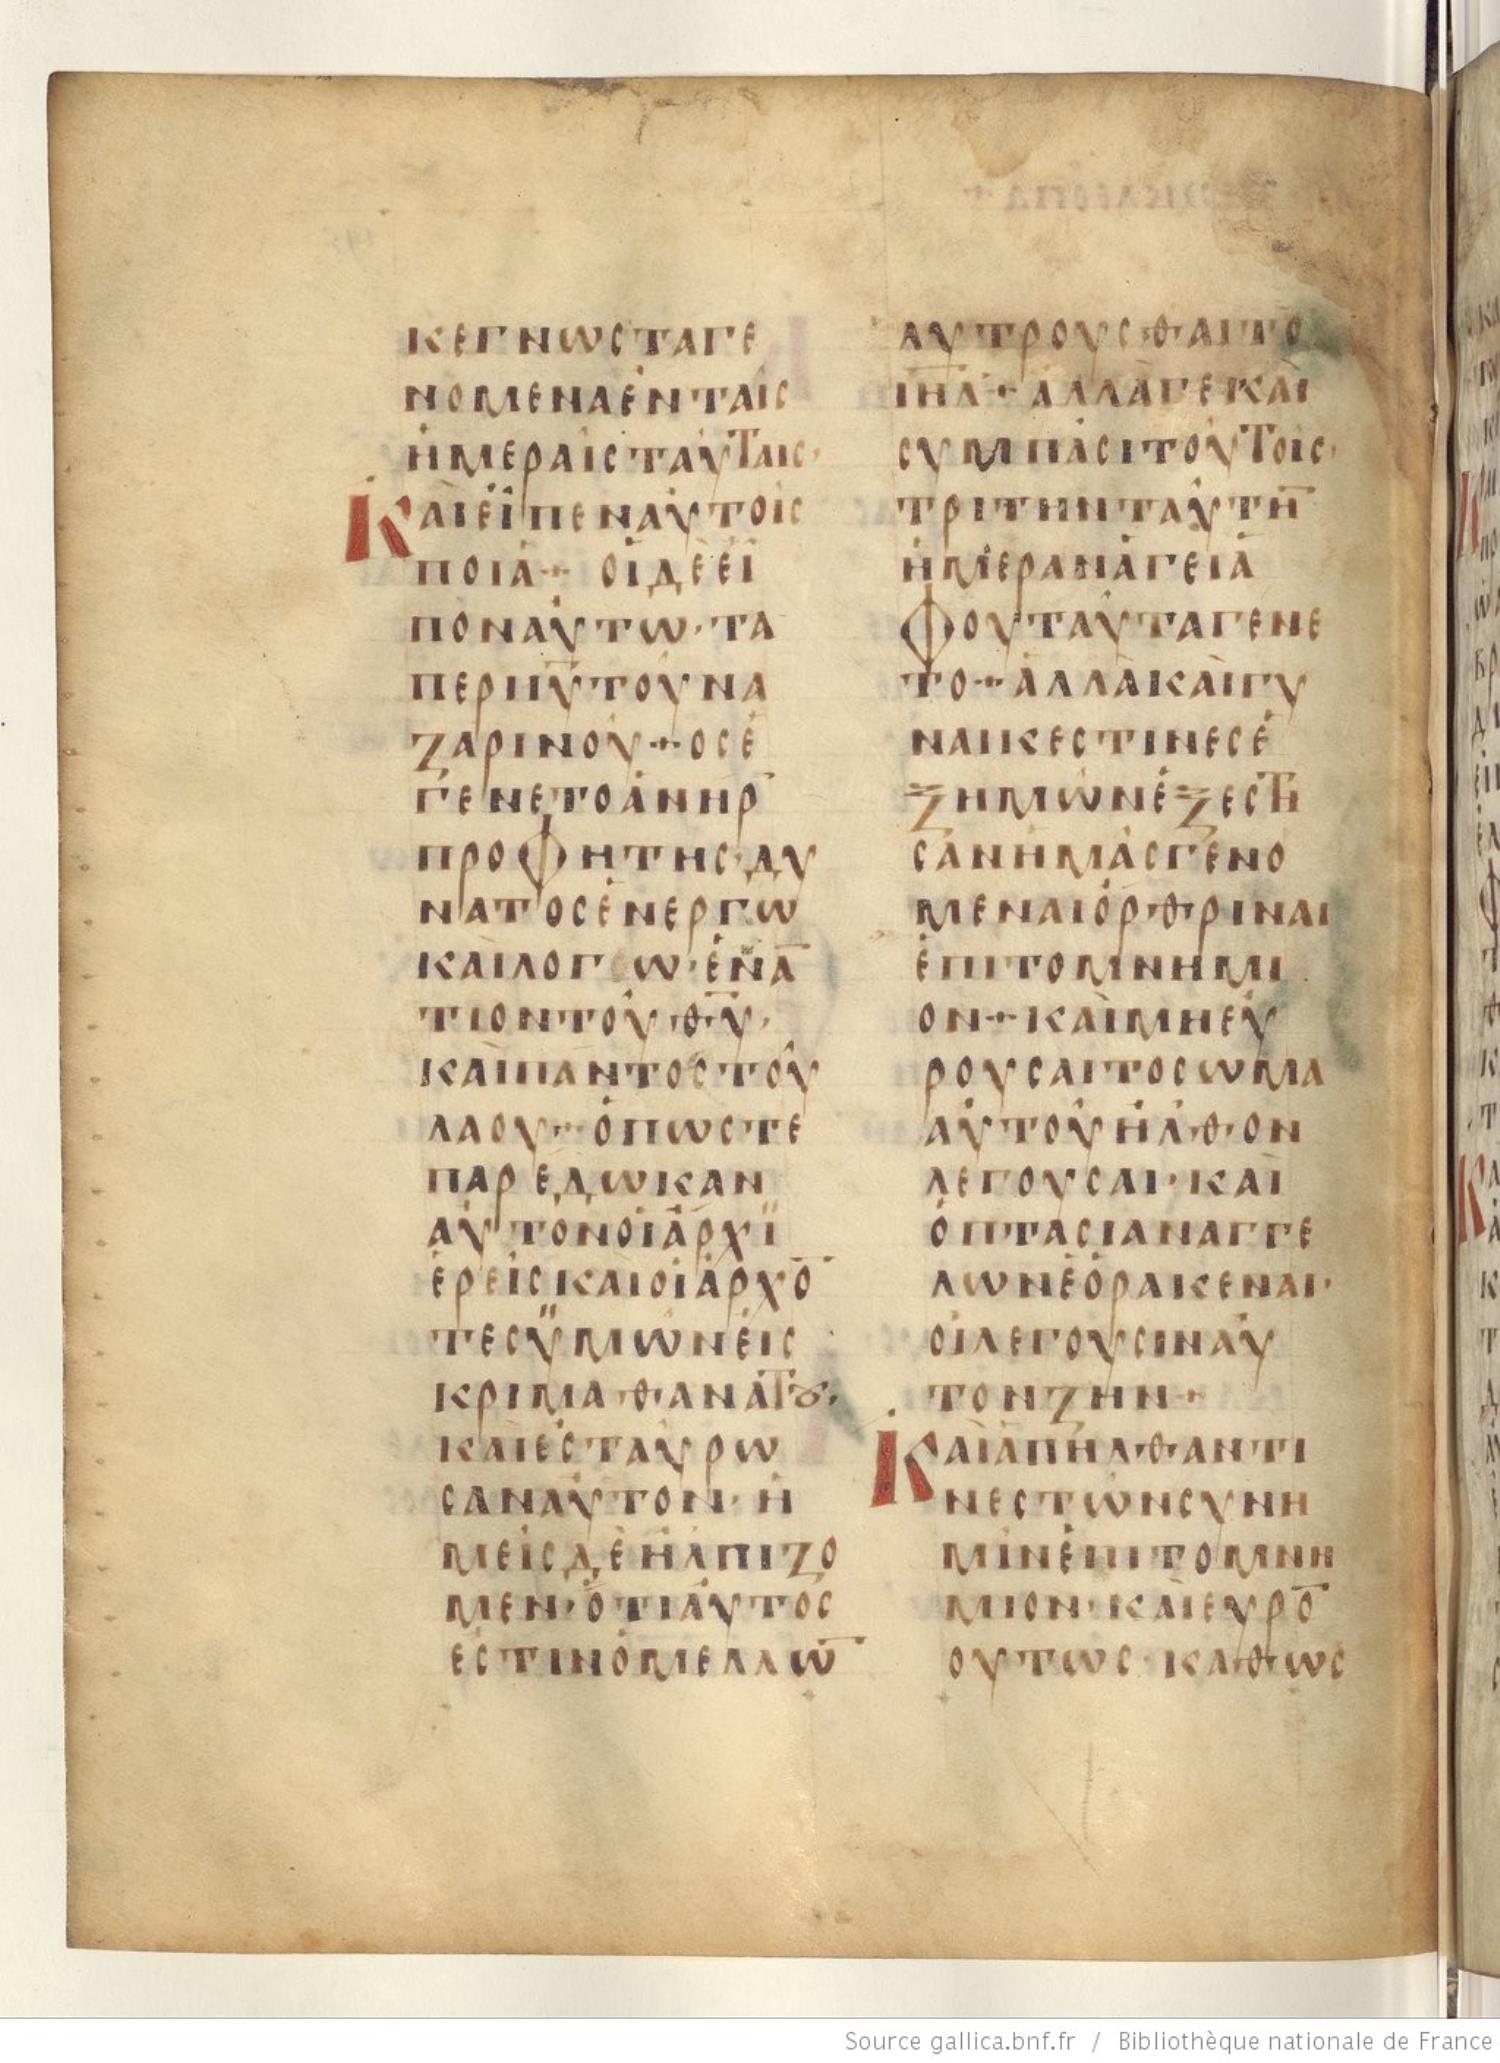 ΚΕΓΝΩϹΤΑΓΕ
ΝΟΜΕΝΑἘΝΤΑΙ͂Ϲ
ἩΜΕΡΑΙϹΤΑΥΤΑΙϹ·
ΚΑῚΕἶΠΕΝΑΥ̓ΤΟΙϹ
ΠΟΙΑ+ΟἱΔῈΕἶ
ΠΟΝΑΥ̓ΤΩ·ΤΑ
ΠΕΡΙΙ̅Υ̅ΤΟΥΝΑ
ΖΑΡΙΝΟΥ+ΟϹἘ
ΓΕΝΕΤΟἈΝΗΡ
ΠΡΟΦΗΤΗϹ·ΔΥ
ΝΑΤΟϹἘΝΕΡΓΩ
ΚΑῚΛΟΓΩ·ἘΝΑ̅
ΤΙΟΝΤΟΥΘ̅Υ̅·
ΚΑῚΠΑΝΤΟϹΤΟΥ
ΛΑΟΥ+ὉΠΩϹΤΕ
ΠΑΡΕΔΩΚΑΝ
ΑΥ̓ΤῸΝΟἱἈΡΧΪ
ΕΡΕΙϹΚΑῚΟἱἈΡΧΟ̅
ΤΕϹΫΜΩΝΕἰϹ
ΚΡΙΜΑΘΑΝΑΤȢ·
ΚΑῚἘϹΤΑΥΡΩ
ϹΑΝΑΥ̓ΤΟΝ·Ἡ
ΜΕΙϹΔῈἨΛΠΙΖΟ
ΜΕΝ·ὉΤΙΑΥ̓ΤΟϹ
ΕϹΤΙΝὉΜΕΛΛΩ̅
ΛΥΤΡΟΥϹΘΑΙΤΟ
Ι̅Η̅Λ̅+ΑΛΛΑΓΕΚΑΙ
ϹΥΜΠΑϹΙΤΟΥΤΟΙϹ·
ΤΡΙΤΗΝΤΑΥΤΗ̅
ἩΜΕΡΑΝἈΓΕΙἈ
ΦΟΥΤΑΥΤΑΓΕΝΕ
ΤΟ+ΑΛΛΑΚΑΙΓΥ
ΝΑΙΚΕϹΤΙΝΕϹἘ
ΞΗΜΩΝἘΞΕϹΤΗ
ϹΑΝἩΜΑϹΓΕΝΟ
ΜΕΝΑΙὈΡΘΡΙΝΑΙ
ἘΠΙΤΟΜΝΗΜΙ
ΟΝ+ΚΑῚΜΗΕΥ
ΡΟΥϹΑΙΤΟϹΩΜΑ
ΑΥ̓ΤΟΥἨΛΘΟΝ
ΛΕΓΟΥϹΑΙ·ΚΑῚ
ὈΠΤΑϹΙΑΝΑΓΓΕ
ΛΩΝἙΟΡΑΚΕΝΑΙ·
ΟἱΛΕΓΟΥϹΙΝΑΥ
ΤΟΝΖΗΝ+
ΚΑῚἈΠΗΛΘΑΝΤΙ
ΝΕϹΤΩΝϹΥΝΗ
ΜΙΝἘΠΙΤΟΜΝΗ
ΜΙΟΝ·ΚΑῚΕΥΡΟ̅
ΟΥΤΩϹ·ΚΑΘΩϹ
Source gallica.bnf.fr / Bibliothèque nationale de France